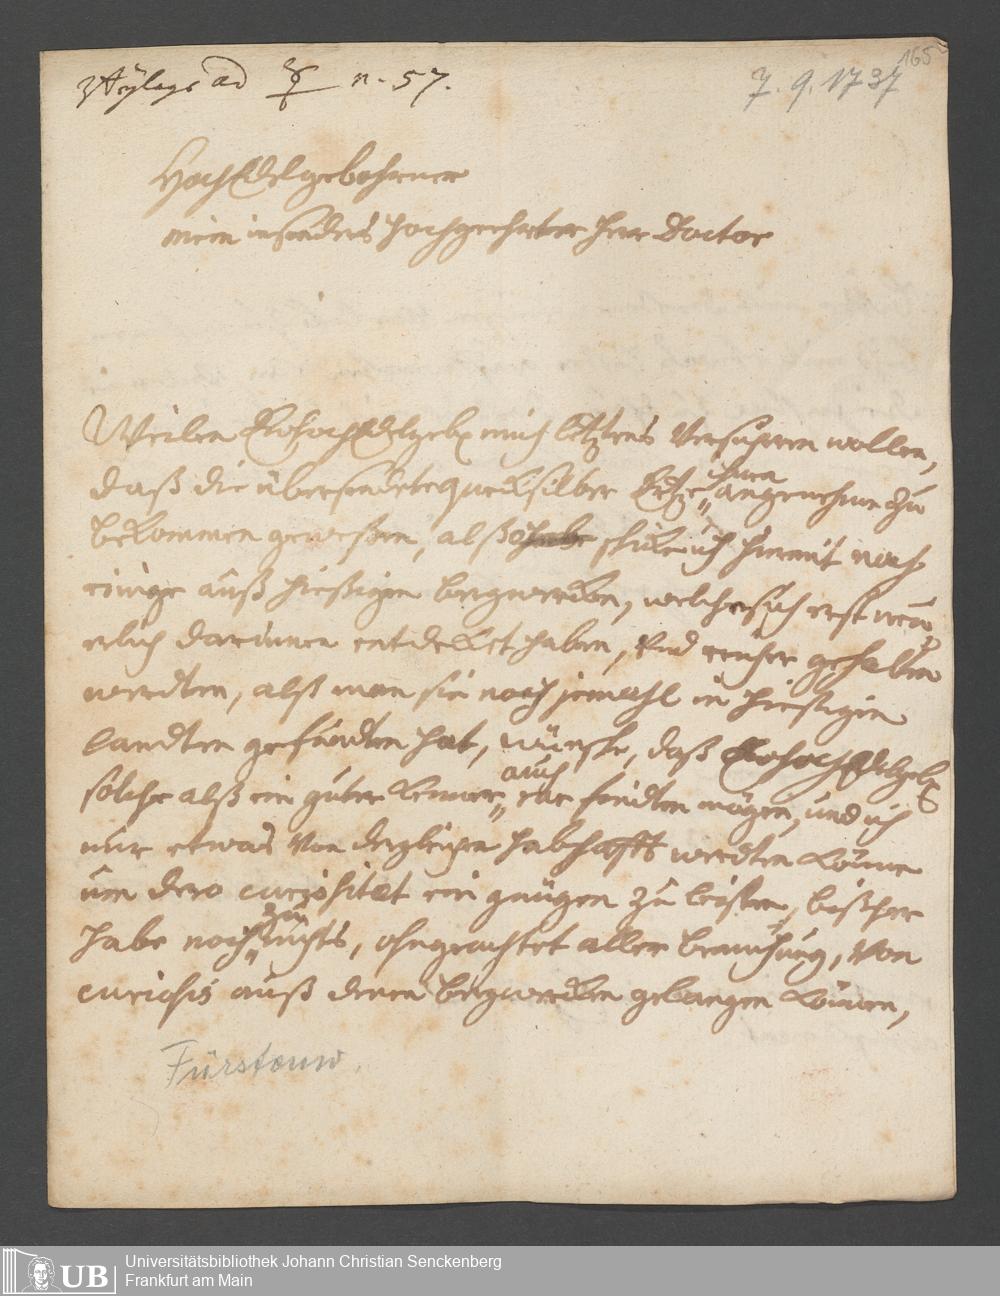 Beylage ad n. 57.
7. 9. 1737
165
HochEdelgebohrner
mein insonders hochgeehrter Herr Doctor
Weilen EwhochEdelgeb mich letztens Versichern wollen,
daß die übersendete quecksilber Ertze ihnen angenehm zu
bekommen geweßen, alß schicke ich hiermit noch
einige auß hießigen bergwercken, welche sich erst neu
erlich darinnen entdecket haben, Und reicher gehalten
werdten, alß man sie noch jemahl in hiesigen
landten gefundten hat, wünsche, daß EwhochEdelgeb
solche alß ein guter Kenner auch findten mögen, und ich
nur etwas Von dergleichen habhafft werdten könne
um dero curiositet ein gnügen zu leisten, bißher
habe noch zu nichts, ohngeachtet aller bemühung, Von
curiosis auß denen bergwercken gelangen können,
Fürstenw.
UB
Universitätsbibliothek Johann Christian Senckenberg
Frankfurt am Main